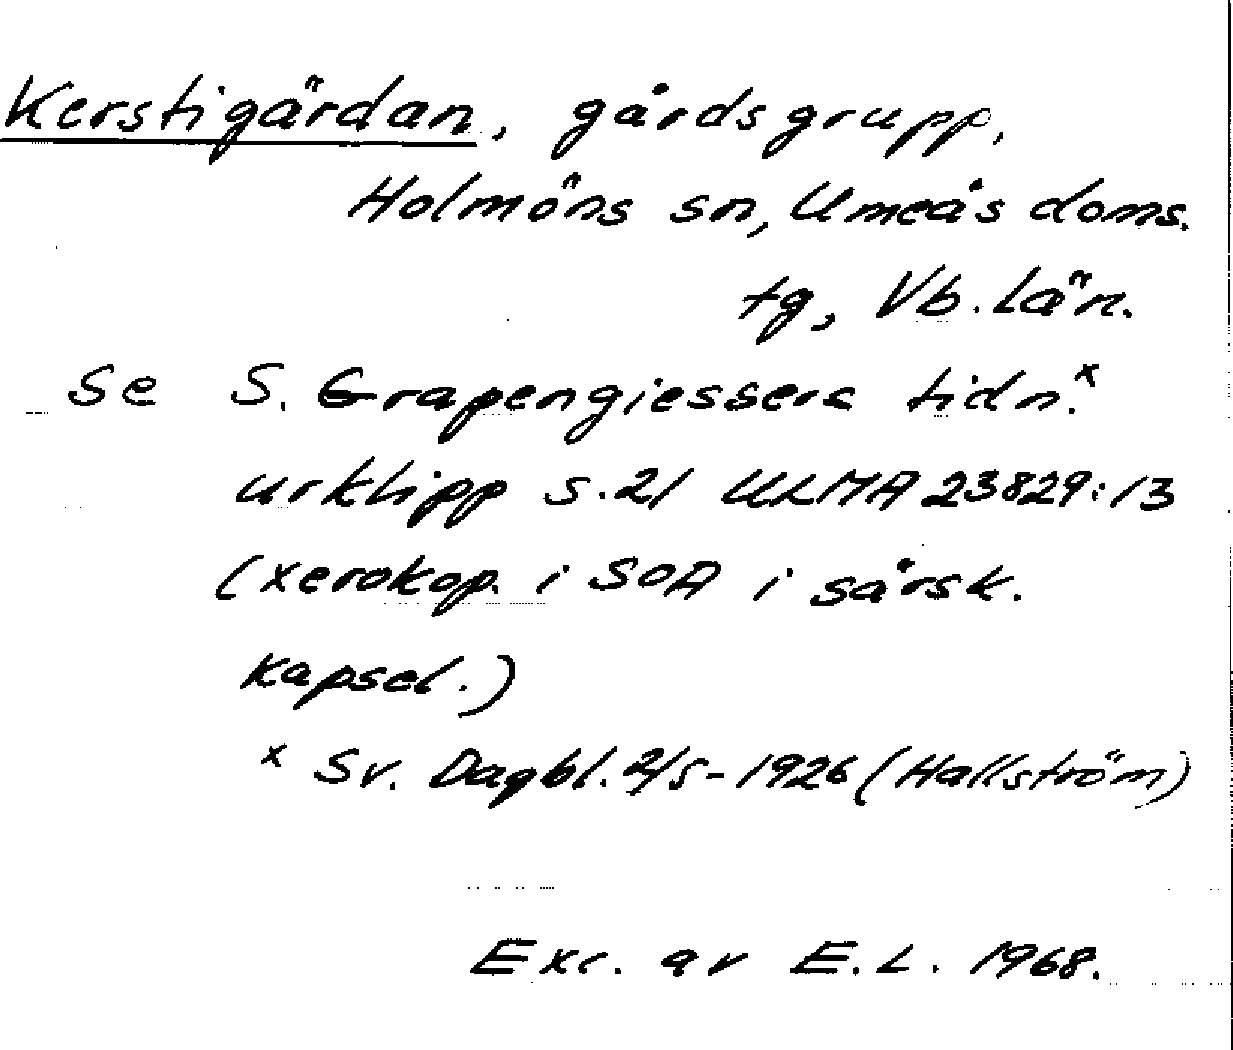 Kerstigärdan, gårdsgrupp,
Holmöns sn, Umeås doms.
tg, Vb. län.
Se S. Grapengiessers tidn.x
urklipp s. 21 ULMA 23829:13
(xerokop. i SOA i särsk.
kapsel.)
x Sv. Dagbl. 2/5-1926 (Hallström)
Exc. av E.L. 1968.